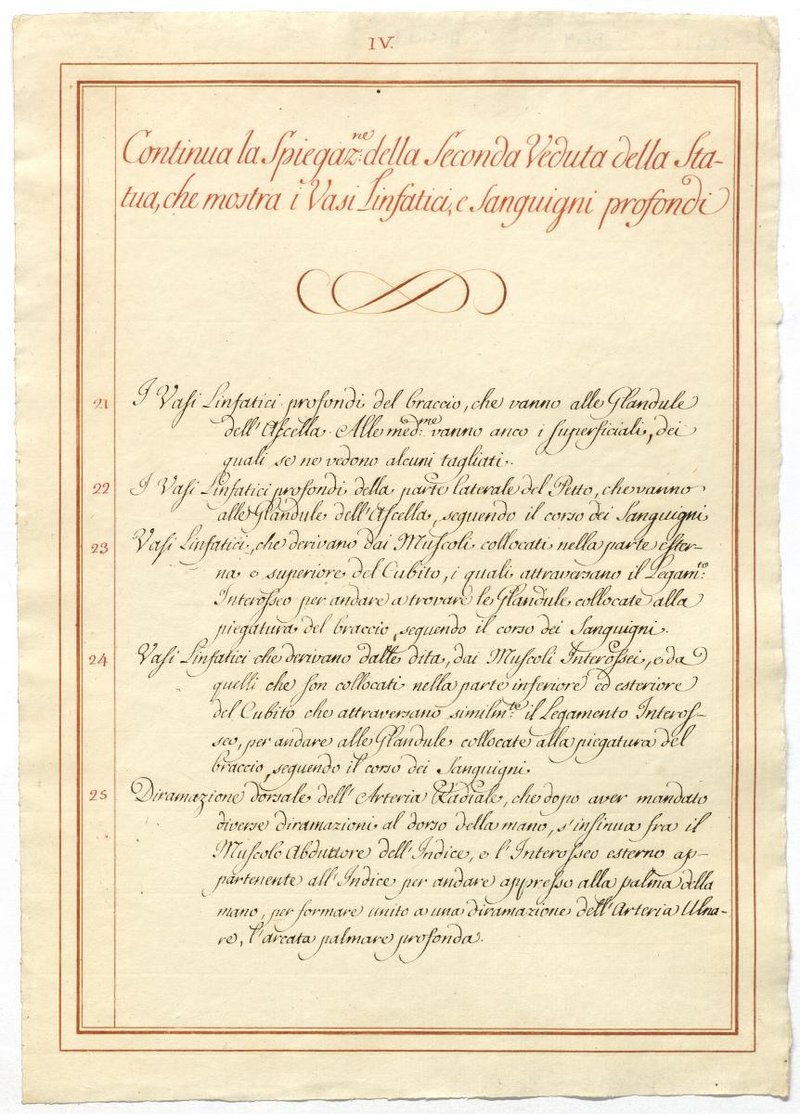 IV.
Continua la Spiegaz:ne della Seconda Veduta della Sta-
tua, che mostra i Vasi Linfatici, e Sanguigni profondi
21 I Vasi Linfatici profondi del braccio, che vanno alle Glandule
dell'Ascella. Alle med:me vanno anco i superficiali, dei
quali se ne vedono alcuni tagliati.
22 I Vasi Linfatici profondi della parte laterale del Petto, che vanno
alle Glandule dell'Ascella, seguendo il corso dei Sanguigni
23 Vasi Linfatici, che derivano dai Muscoli collocati nella parte ester-
na e superiore del Cubito, i quali attraversano il Legam:to
Interosseo per andare a trovare le Glandule collocate alla
piegatura del braccio, seguendo il corso dei Sanguigni.
24 Vasi Linfatici che derivano dalle dita, dai Muscoli Interossei, e da
quelli che son collocati nella parte inferiore ed esteriore
del Cubito che attraversano similm:te il Legamento Interos-
seo, per andare alle Glandule collocate alla piegatura del
braccio, seguendo il corso dei Sanguigni.
25 Diramazione dorsale dell'Arteria Radiale, che dopo aver mandato
diverse diramazioni al dorso della mano, s'insinua fra il
Muscolo Abduttore dell'Indice, e l'Interosseo esterno ap-
partenente all'Indice per andare appresso alla palma della
mano, per formare unito a una diramazione dell'Arteria Ulna-
re, l'arcata palmare profonda.